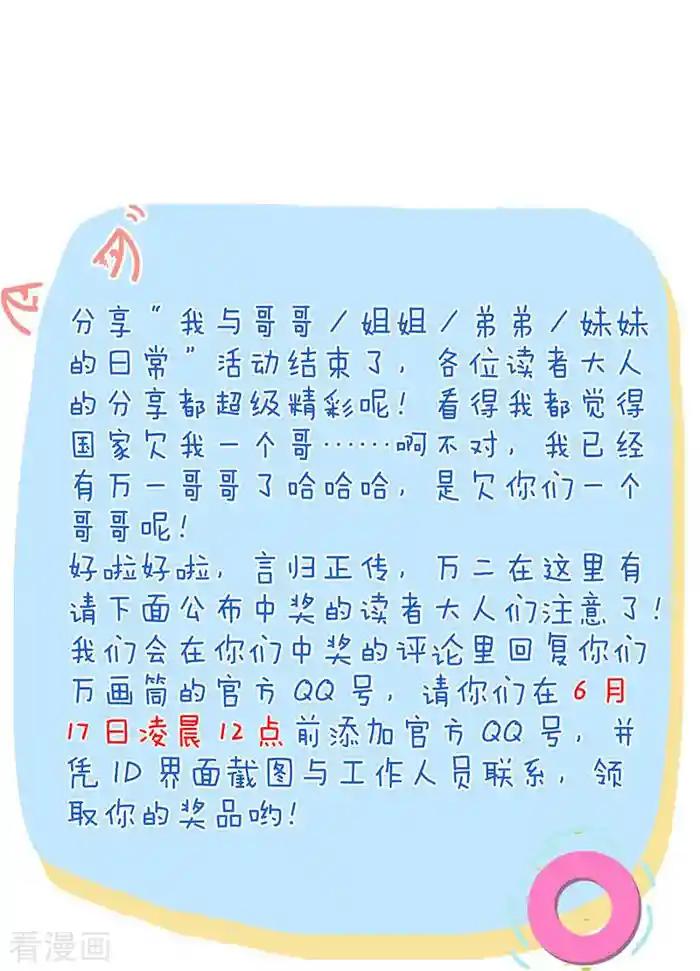 分享“我与哥哥/姐姐/弟弟/妹妹
的日常”活动结束了，各位读者大人
的分享都超级精彩呢！看得我都觉得
国家欠我一个哥……啊不对，我已经
有万一哥哥了哈哈哈，是欠你们一个
哥哥呢！
好啦好啦，言归正传，万二在这里有
请下面公布中奖的读者大人们注意了！
我们会在你们中奖的评论里回复你们
万画筒的官方QQ号，请你们在6月
17日凌晨12点前添加官方QQ号，并
凭ID界面截图与工作人员联系，领
取你的奖品哟！
看漫画